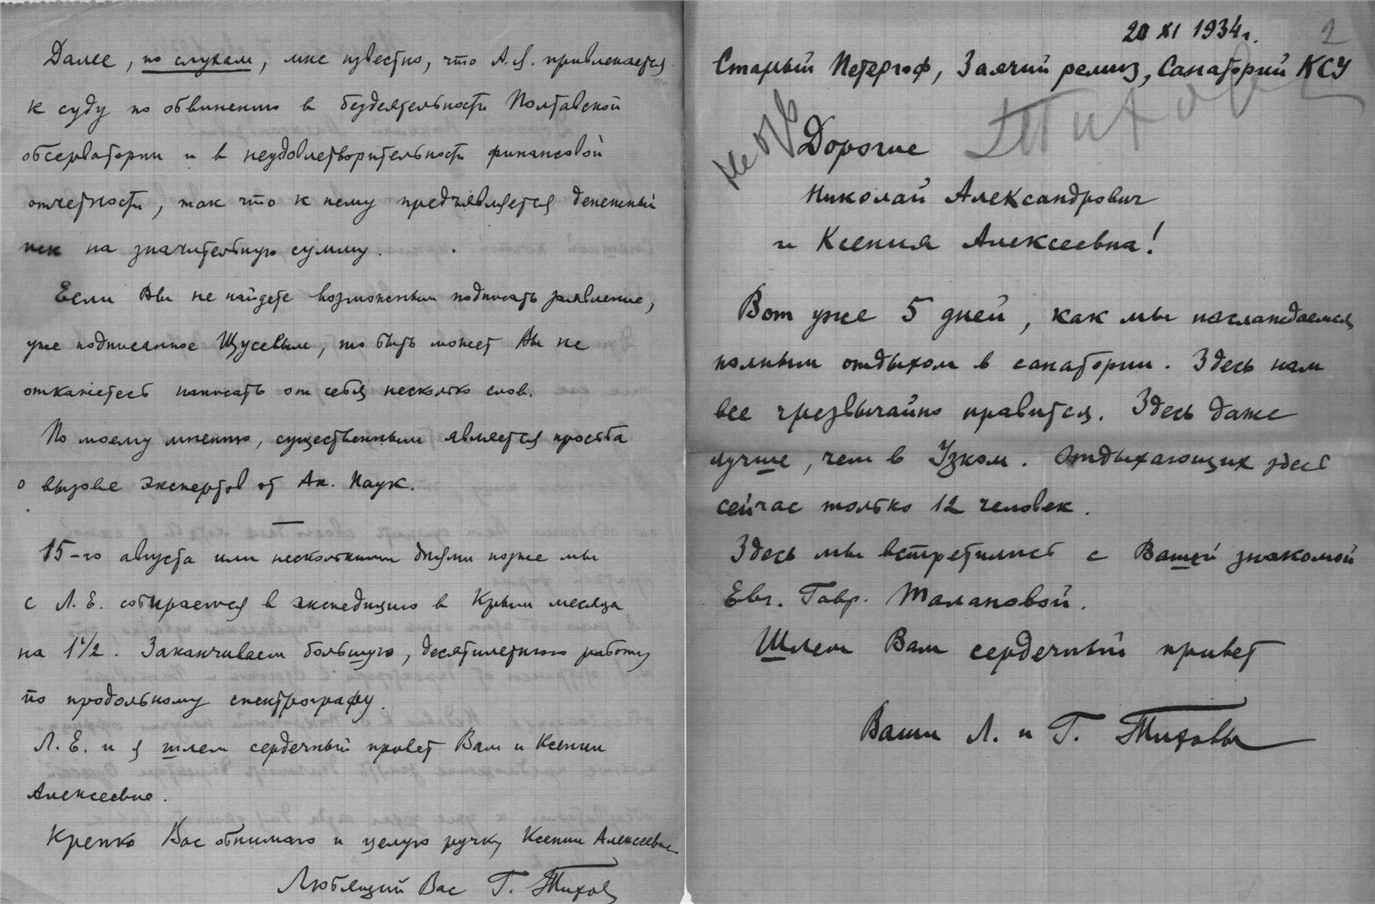 Далее, по слухам, мне известно, что А.Я. привлекается
к суду по обвинению в бездеятельности Полтавской
обсерватории и в неудовлетворительности финансовой
отчетности, так что к нему предъявляется денежный
иск на значительную сумму.
Если Вы не найдете возможным подписать заявление,
уже подписанное Щусевым, то быть может Вы не
откажетесь написать от себя несколько слов.
По моему мнению, существенным является просьба
о вызове экспертов от Ак. Наук.
15-го августа или несколькими днями позже мы
с Л.Е. собираемся в экспедицию в Крым месяца
на 1 1/2. Заканчиваем большую, десятилетнюю работу
по продольному спектрографу.
Л.Е. и я шлем сердечный привет Вам и Ксении
Алексеевне.
Крепко Вас обнимаю и целую ручку Ксении Алексеевне
Любящий Вас Г. Тихов
2
20 XI 1934г.
Старый Петергоф, Заячий ремиз, Санаторий КСУ
Тихов
Дорогие
Николай Александрович
и Ксения Алексеевна!
Вот уже 5 дней, как мы наслаждаемся
полным отдыхом в санатории. Здесь нам
все чрезвычайно нравится. Здесь даже
лучше, чем в Узком. Отдыхающих здесь
сейчас только 12 человек.
Здесь мы встретились с Вашей знакомой
Евг. Гавр. Талановой.
Шлем Вам сердечный привет
Ваши Л. и Г. Тиховы